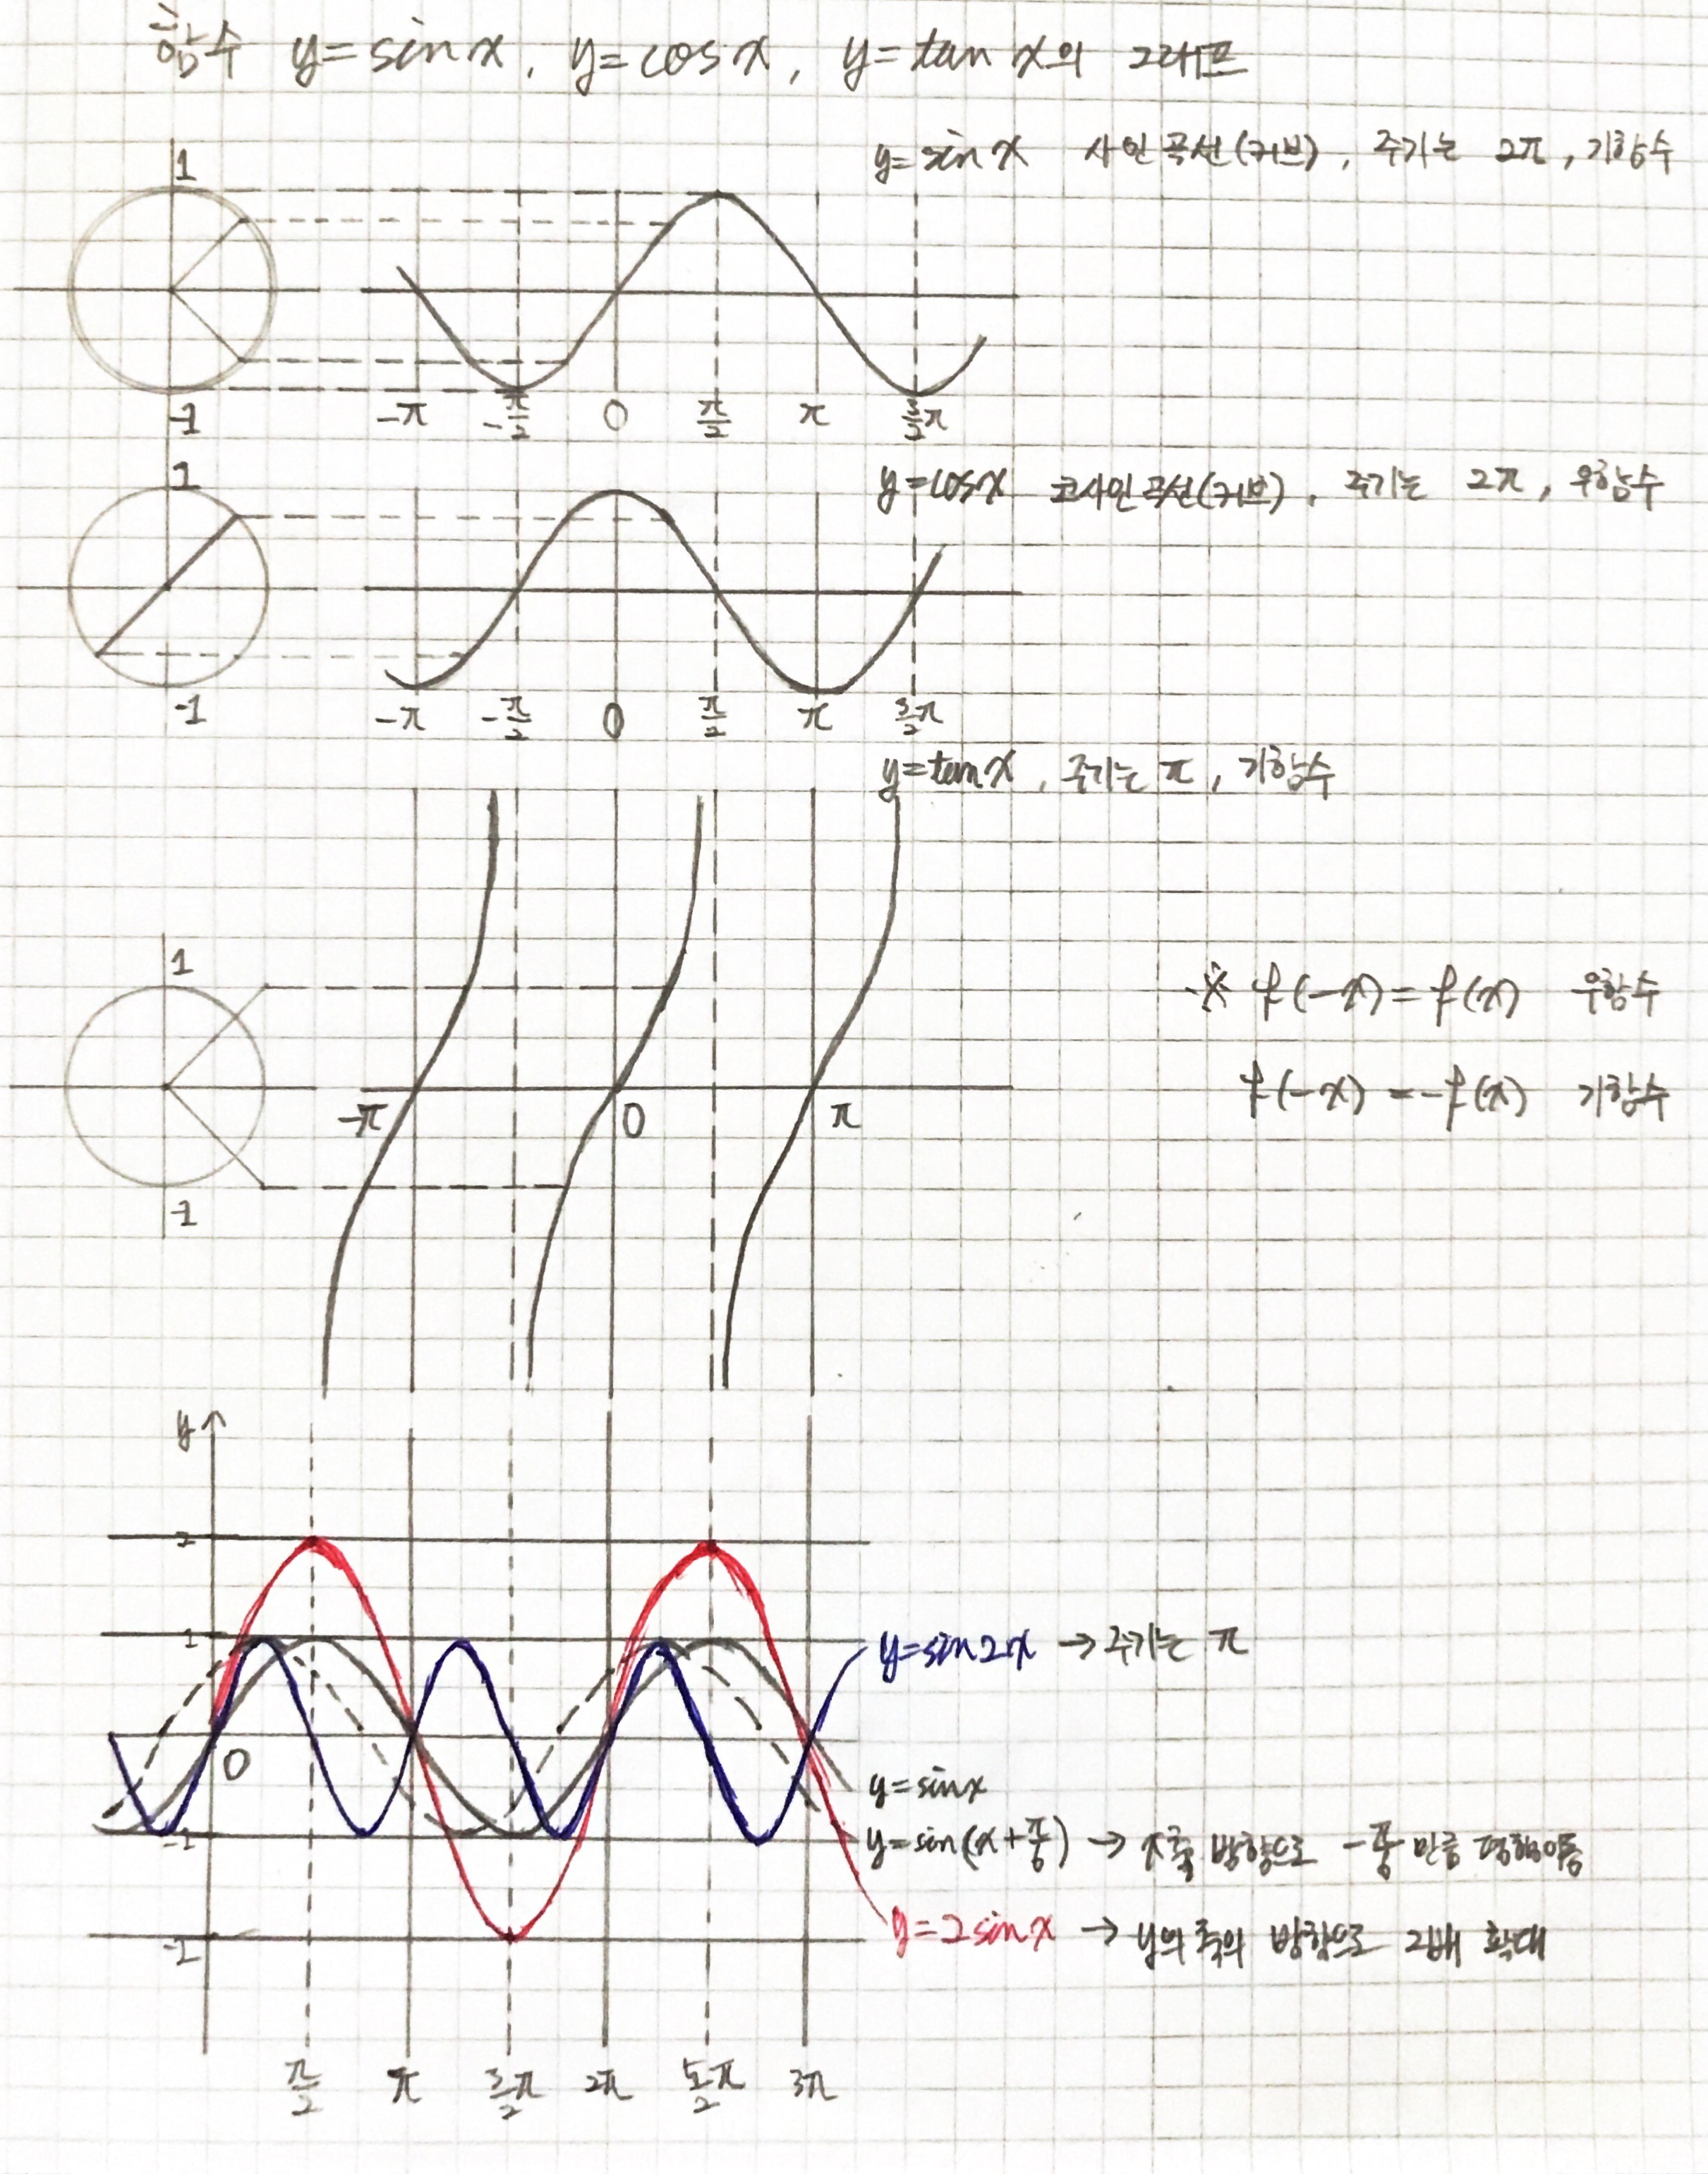 함수 y=sinx, y=cosx, y=tanx의 그래프
y=sinx 사인곡선(커브), 주기는 2π, 기함수
1
-1
-π -π/2 0 π/2 π 3/2π
y=cosx 코사인곡선(커브), 주기는 2π, 우함수
1
-1
-π -π/2 0 π/2 π 3/2π
y=tanx, 주기는 π, 기함수
1
※ f(-x)=f(x) 우함수
f(-x)=-f(x) 기함수
-π 0 π
-1
y
2
1
y=sin2x → 주기는 π
0
y=sinx
-1
y=sin(x+π/6) → x축 방향으로 -π/6 만큼 평행이동
y=2sinx → y의 축의 방향으로 2배 확대
-1
π/2 π 3/2π 2π 5/2π 3π